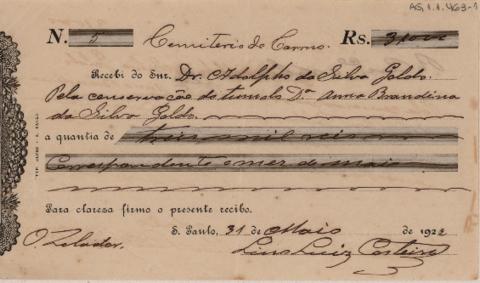 AG.1.1.463-1
N. 5 Cemiterio do Carmo. Rs. 3,000
Recebi do Snr. Dr. Adolpho da Silva Gordo
Pela conservação do tumulo Dª Anna Brandina
da Silva Gordo
a quantia de tres mil reis
Correspondente o mez de maio
Para clareza firmo o presente recibo.
S. Paulo, 31 de Maio de 1922
O Zelador. Luiz